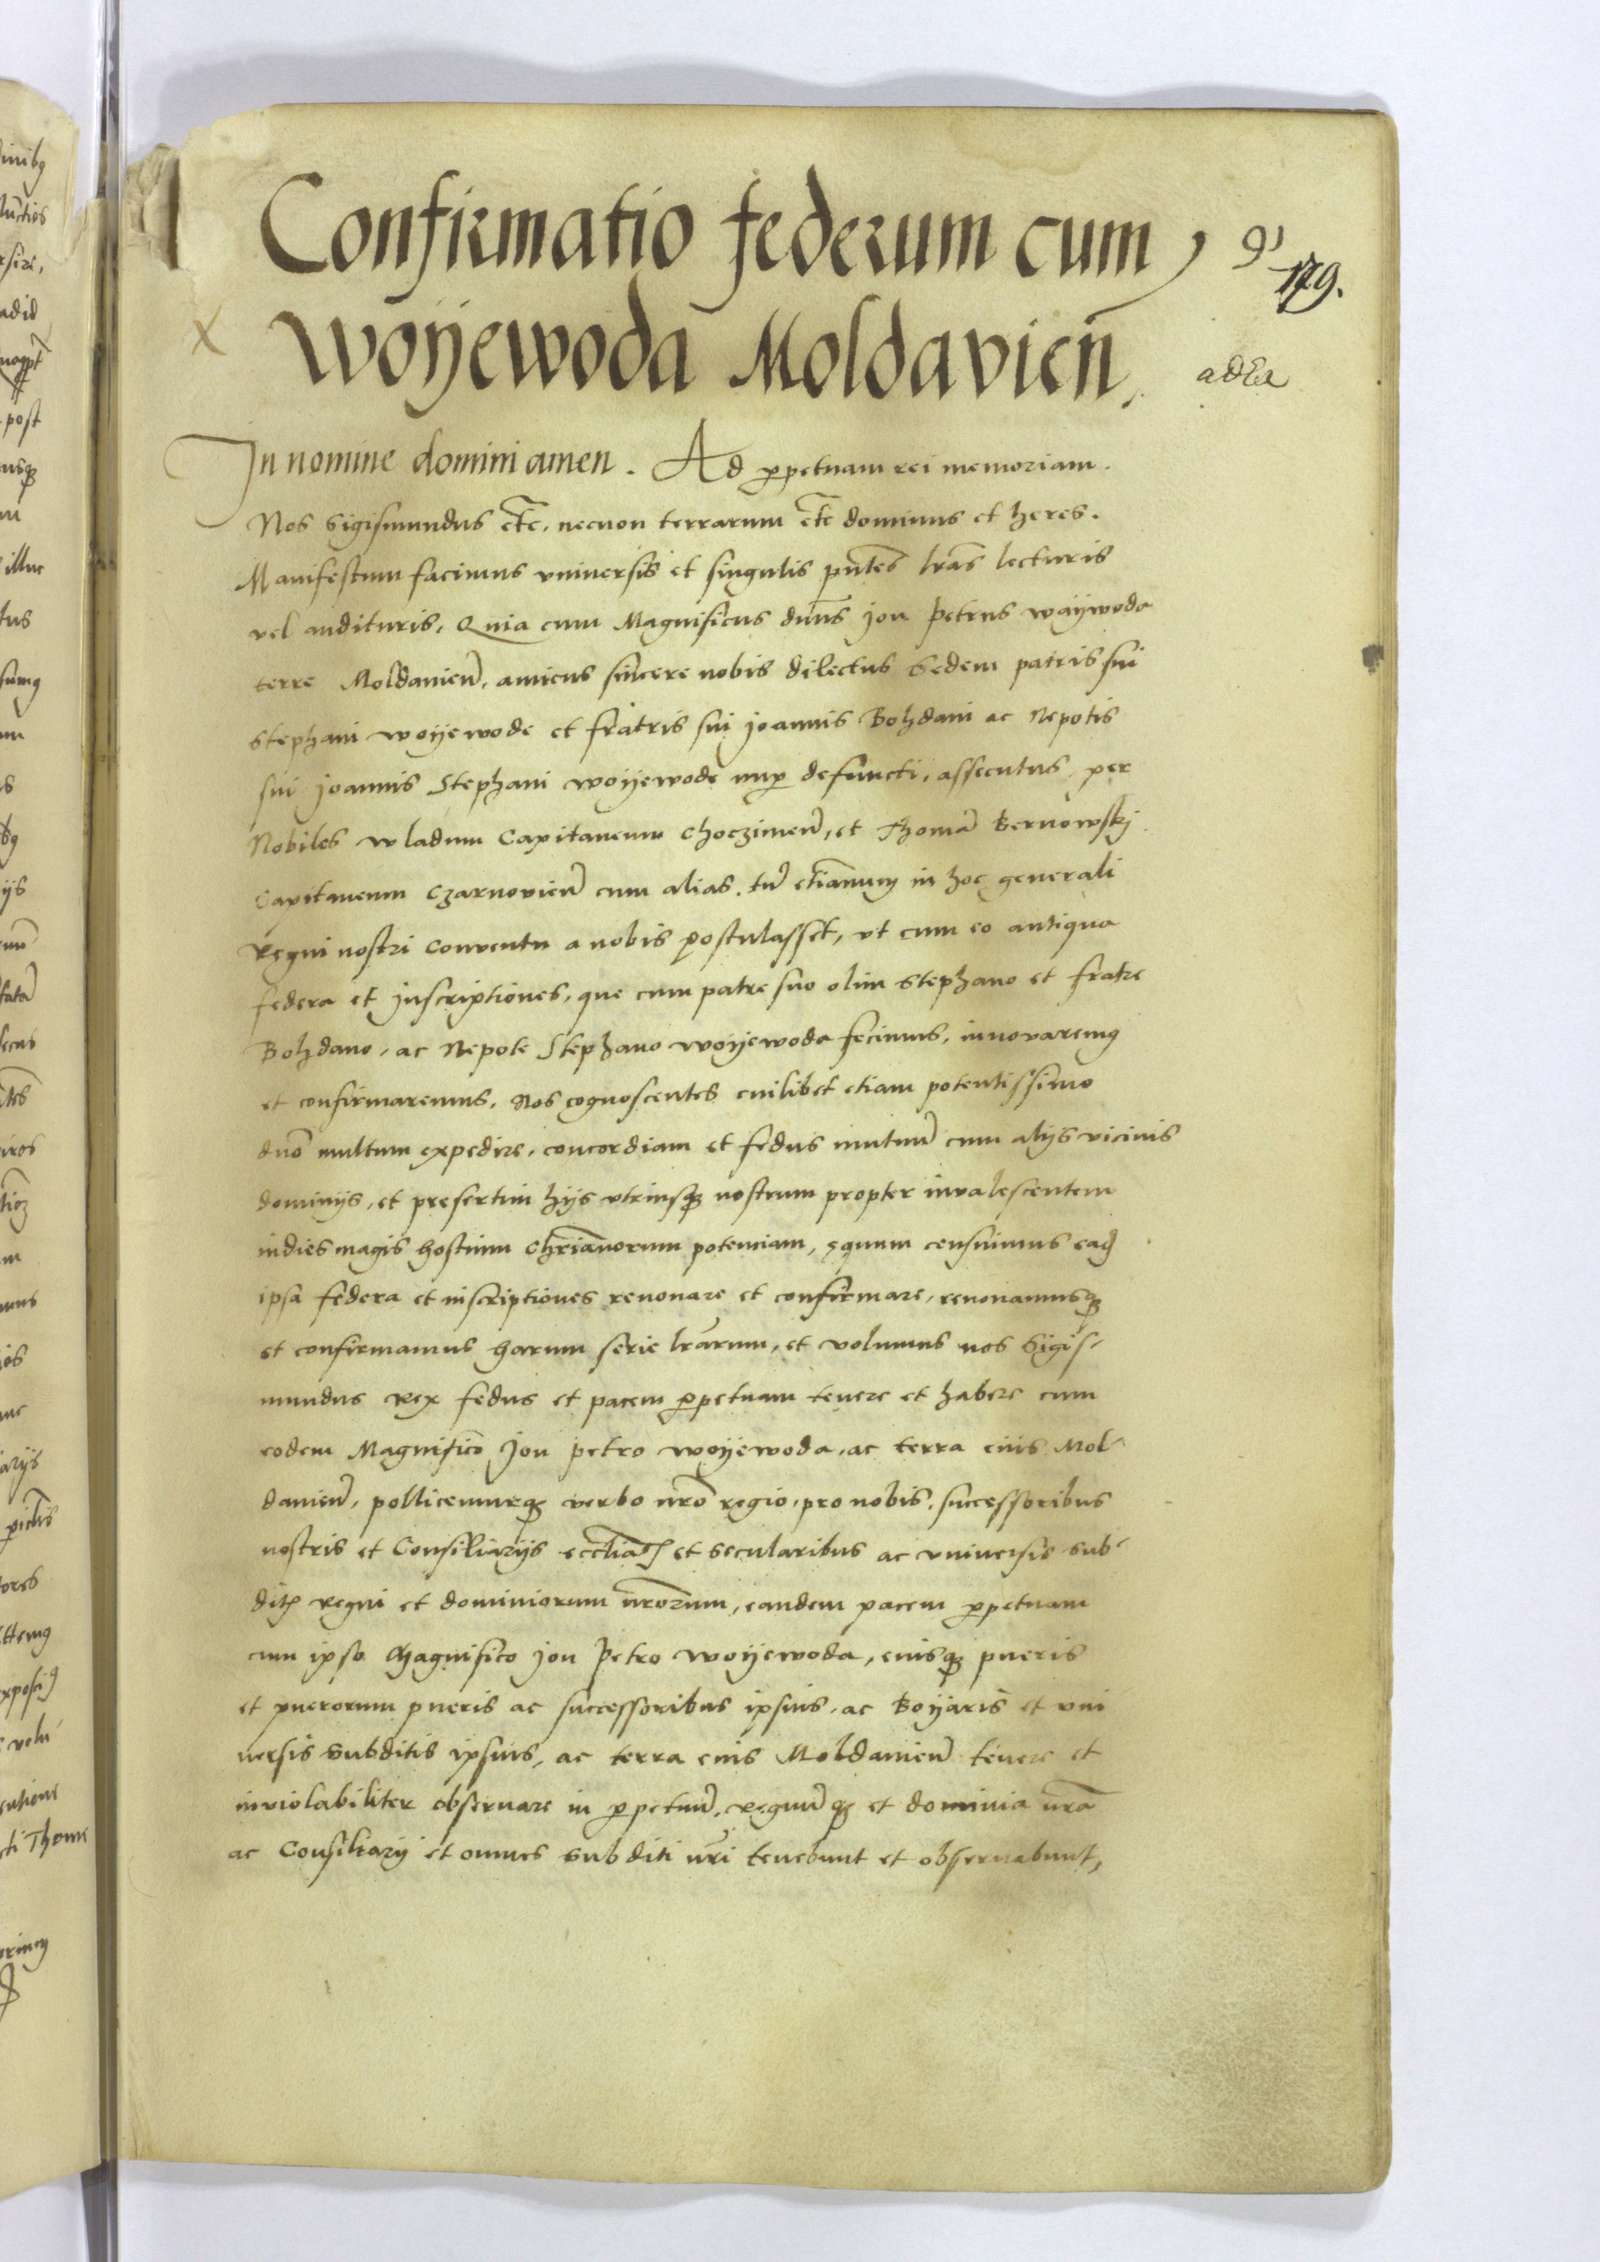 Confirmatio federum cum
woyewoda Moldavień.
179.
In nomine domini amen. Ad ꝑpetuam rei memoriam.
Nos Sigismundus etc̄. necnon terrarum etc̄ dominus et heres.
Manifestum facimus vniversis et singulis pn̄tes lr̄as lecturis
vel audituris, Quia cum Magnificus dn̄us Jon Petrus waywoda
terre Moldauień, amicus sincere nobis dilectus Sedem patris sui
Stephani woyewode et fratris sui Joannis Bohdani ac Nepotis
sui Joannis Stephani woyewode nuꝑ defuncti, assecutus, per
Nobiles wladum Capitaneum Choczimień, et Thomā Bernowskj
Capitaneum Czarnovień cum alias, tū etiamnum in hoc generali
Regni nostri Conventu a nobis postulasset, vt cum eo antiqua
federa et Inscriptiones, que cum patre suo olim Stephano et fratre
Bohdano, ac Nepote Stephano woyewoda fecimus, innovaremꝰ
et confirmaremus. Nos cognoscentes cuilibet etiam potentissimo
dn̄o multum expedire, concordiam et fedus mutuū cum alijs vicinis
dominijs, et presertim hijs vtriusqꝫ nostrum propter invalescentem
indies magis hostium Chr̄ianorum potenciam, ęquum censuimus eadē
ipsa federa et inscriptiones renouare et confirmare, renouamusqꝫ
et confirmamus harum serie lr̄arum, et volumus nos Sigis-
mundus Rex fedus et pacem ꝑpetuam tenere et habere cum
eodem Magnifico Jon Petro woyewoda, ac terra eius Mol-
dauień, pollicemurqꝫ verbo nr̄o regio, pro nobis, successoribus
nostris et Consiliarijs eccliāꝭ et secularibus ac vniuersis sub-
ditꝭ Regni et dominiorum nr̄orum, eandem pacem ꝑpetuam
cum ipso Magnifico Jon Petro woyewoda, eiusqꝫ pueris
et puerorum pueris ac successoribus ipsius, ac Boyaris et vni
uersis subditis ipsius, ac terra eius Moldauień tenere et
inviolabiliter obseruare in ꝑpetuū, Regnūqꝫ et dominia nr̄a
ac Consiliarij et omnes subditi nr̄i tenebunt et obseruabunt,